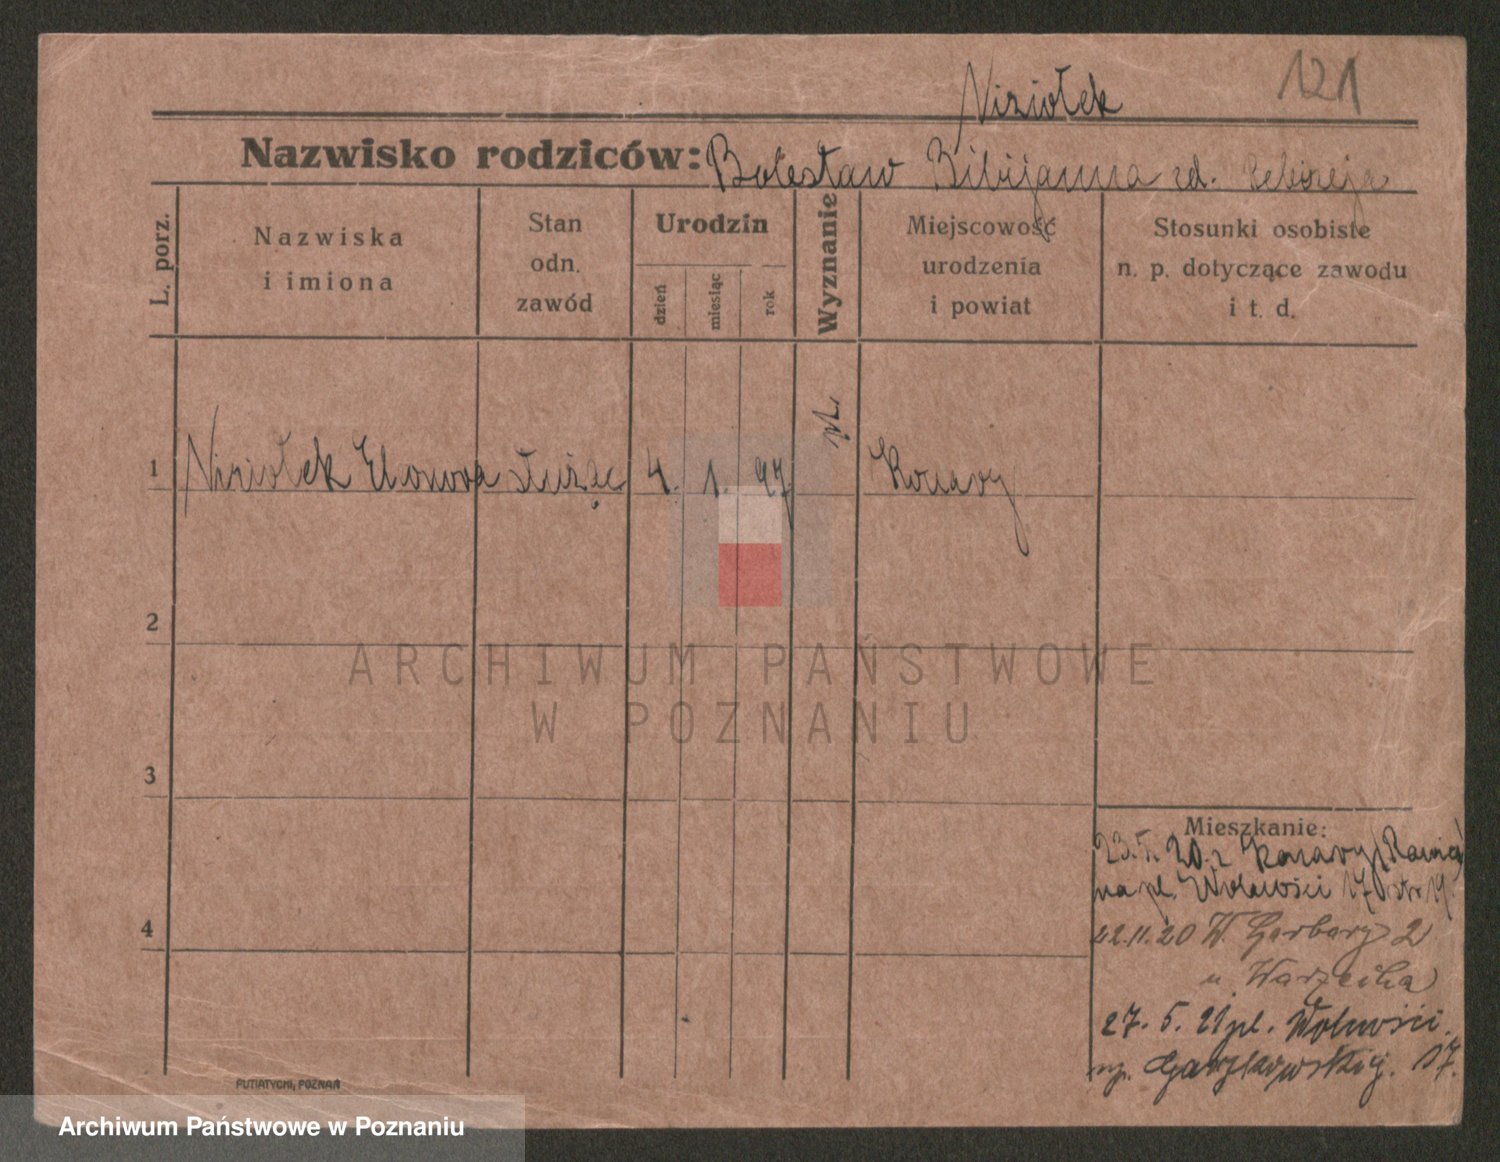 121
Niziołek
Nazwisko rodziców: Bolesław Bibijanna zd.
L. porz.
Nazwiska i imiona
Stan odn. zawód
Urodzin
dzień
miesiąc
rok
Wyznanie
Miejscowość urodzenia i powiat
Stosunki osobiste n. p. dotyczące zawodu i t. d.
1 Niziołek Eleonora służąc. 4. 1. 97 Konary
2
3
4
ARCHIWUM PAŃSTWOWE
W POZNANIU
Mieszkanie:
23.5. 20. z Konary
na pl. Wolności 17
22.11.20 W. Garbary 2
u. Warzecha
27. 5. 21 pl. Wolności
17.
PUTIATYCKI, POZNAŃ
Archiwum Państwowe w Poznaniu